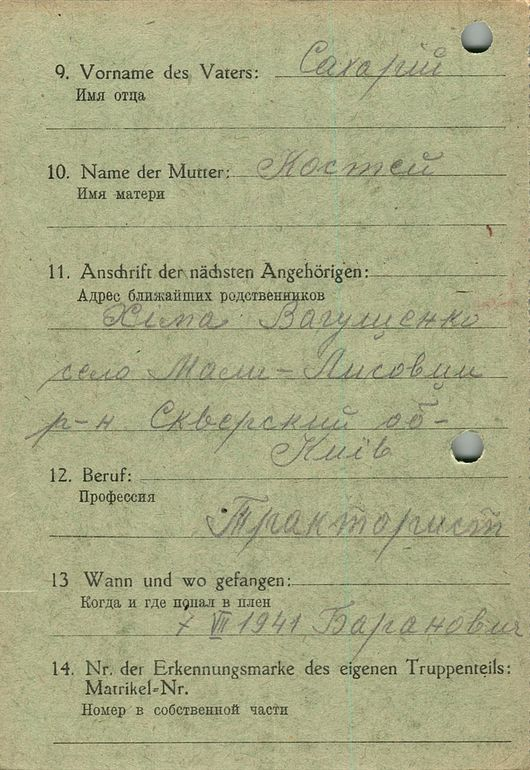 9. Vorname des Vaters: Сахарій
Имя отца
10. Name der Mutter: Костей
Имя матери
11. Anschrift der nächsten Angehörigen:
Адрес ближайших родственников
Хима Вагушенко
село Мали-Лисовци
р-н Скверский об-
Київ
12. Beruf:
Профессия
Тракторист
13 Wann und wo gefangen:
Когда и где попал в плен
7 VII 1941 Баранович
14. Nr. der Erkennungsmarke des eigenen Truppenteils:
Matrikel-Nr.
Номер в собственной части